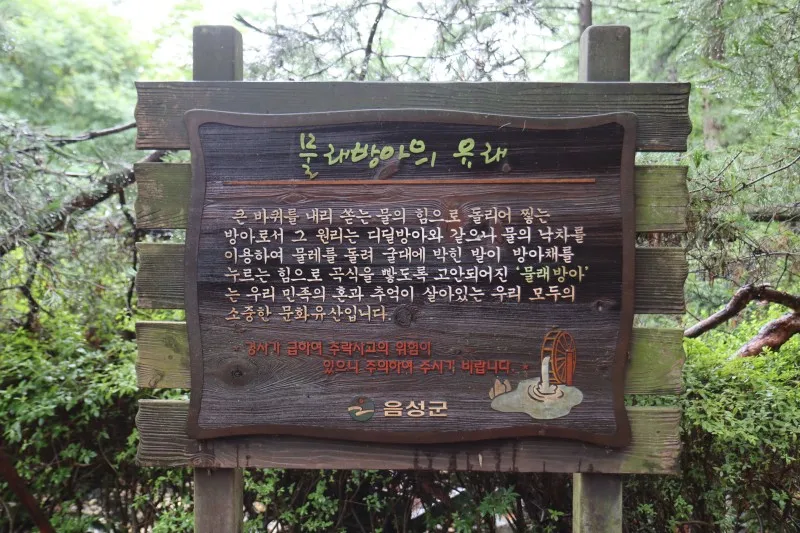 물래방아의 유래
큰 바퀴를 내리 쏟는 물의 힘으로 돌리어 찧는
방아로서 그 원리는 디딜방아와 같으나 물의 낙차를
이용하여 물레를 돌려 굴대에 박힌 발이 방아채를
누르는 힘으로 곡식을 빻도록 고안되어진 '물래방아'
는 우리 민족의 혼과 추억이 살아있는 우리 모두의
소중한 문화유산입니다.
경사가 급하여 추락사고의 위험이
있으니 주의하여 주시기 바랍니다.
음성군